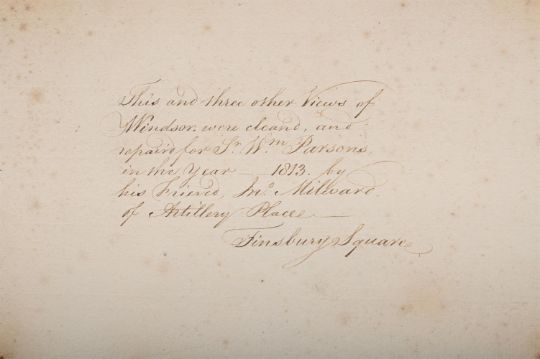 This and three other Views of
Windsor, were cleand, and
repaird for Sr. Wm Parsons,
in the Year — 1813. by
his Friend, Jno. Millward
of Artillery Place —
Finsbury Square